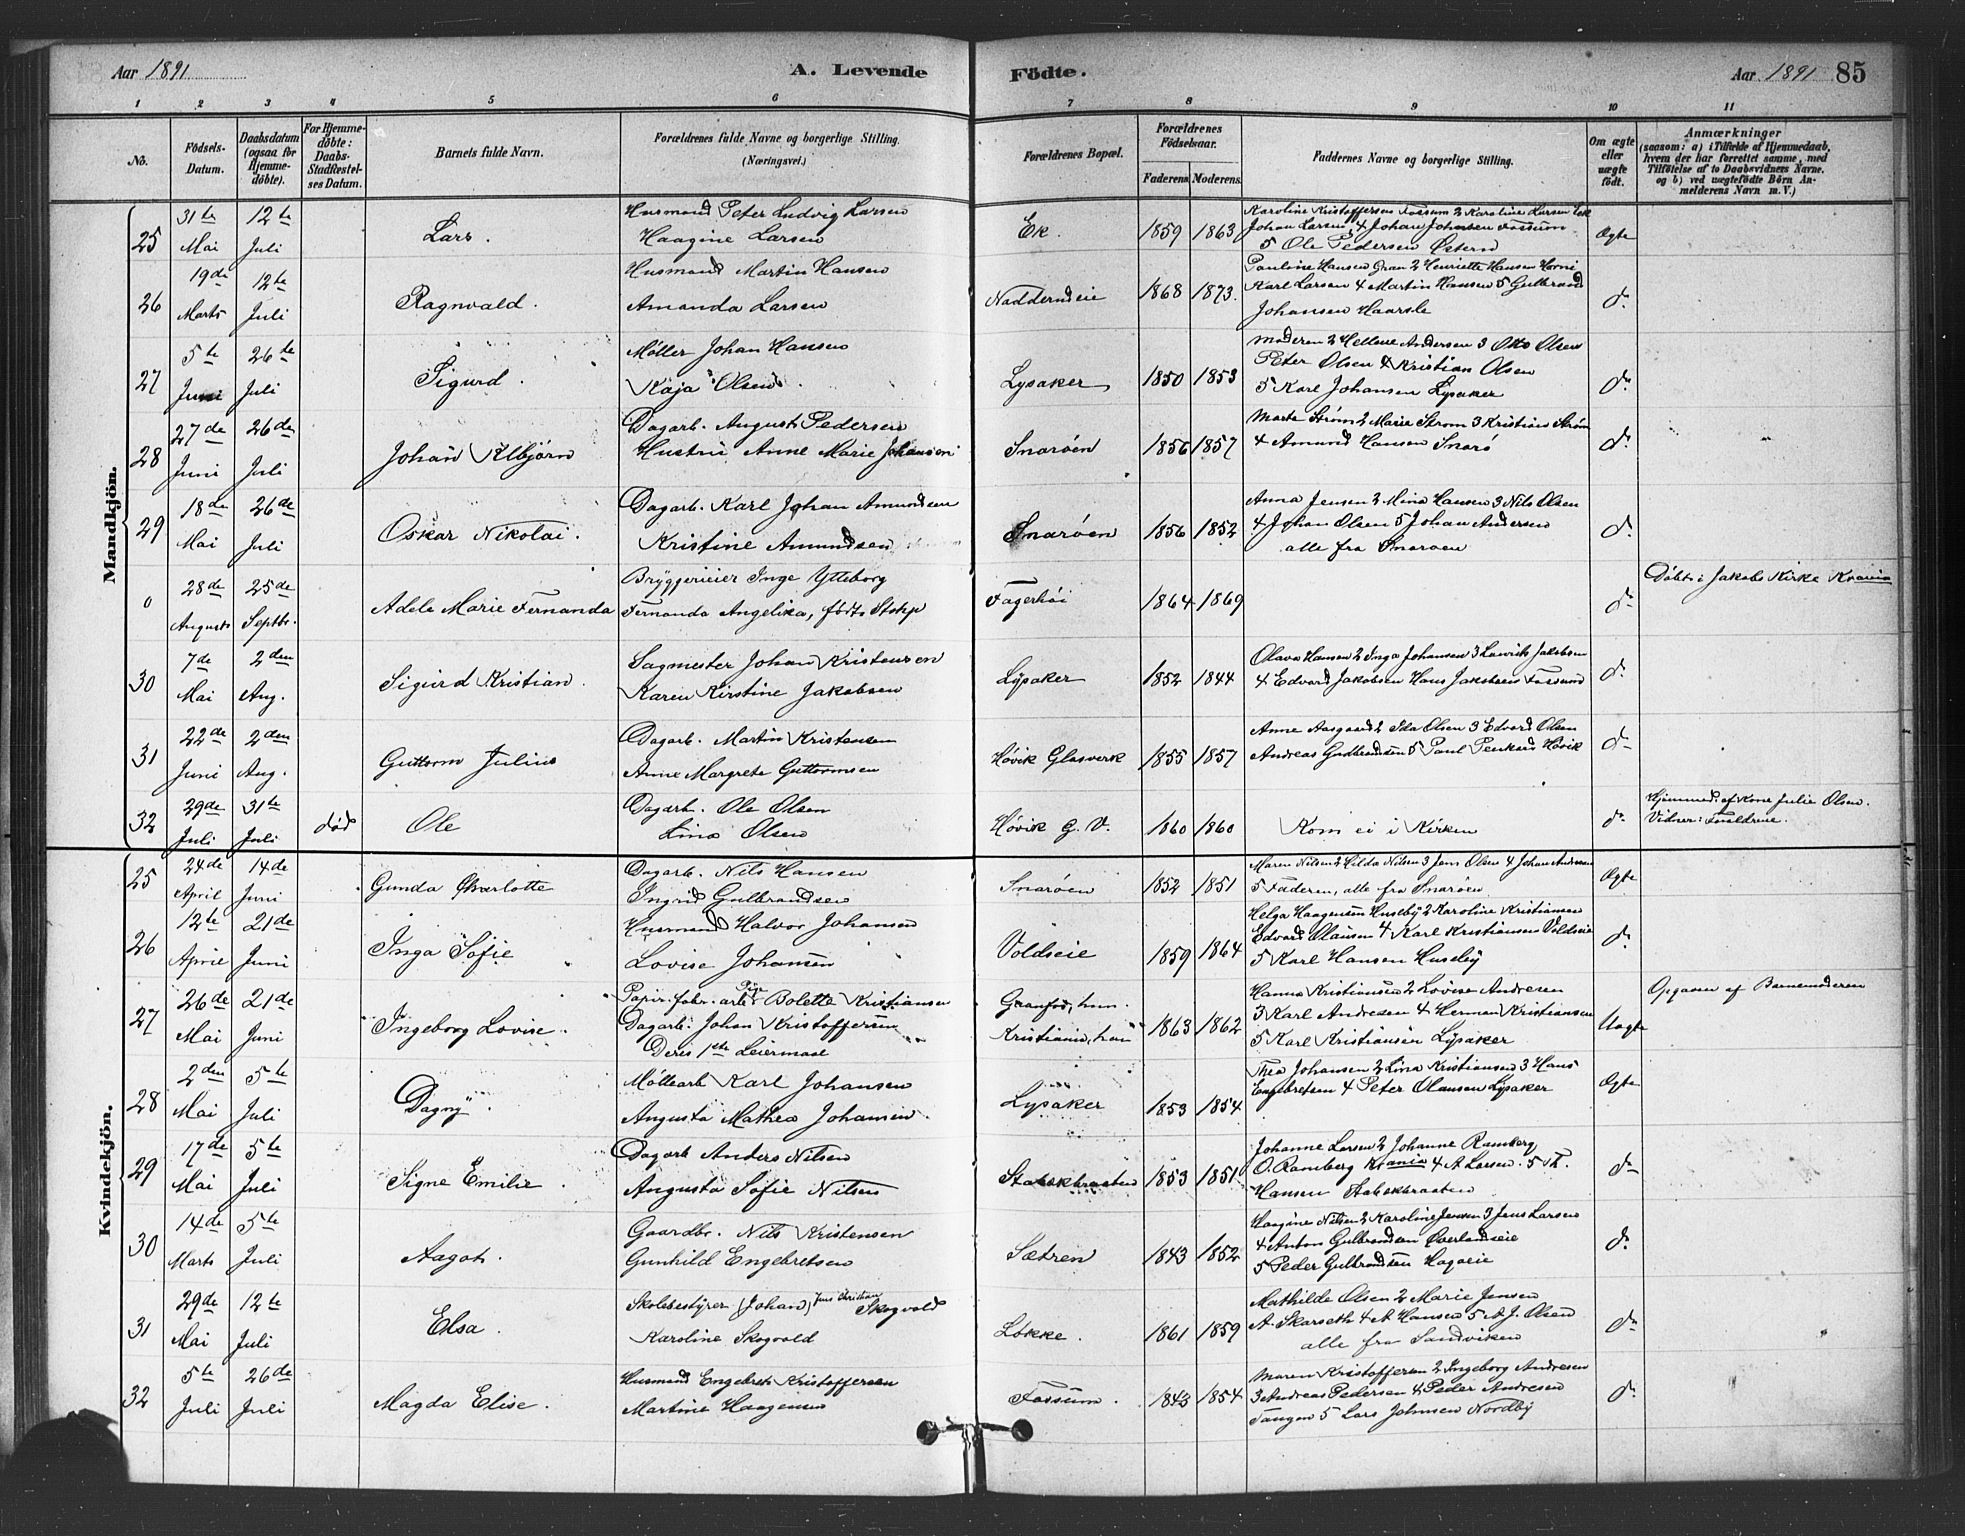 Aar 1891
A. Levende Födte.
Aar 1891 85
1 2 3 4 5 6 7 8 9 10 11
No.
Födsels-Datum.
Daabsdatum (ogsaa for Hjemme-döbte).
For Hjemme-döbte: Daabs-Stadfæstel-ses Datum.
Barnets fulde Navn.
Forældrenes fulde Navne og borgerlige Stilling. (Næringsvei.)
Forældrenes Bopæl.
Forældrenes Födselsaar.
Faderens Moderens.
Faddernes Navne og borgerlige Stilling.
Om ægte eller uægte födt.
Anmærkninger
(saasom: a) i Tilfælde af Hjemmedaab, hvem der har forrettet samme, med Tilföielse af to Daabsvidners Navne, og b) ved uægtefödte Börn An-melderens Navn m. V.)
Mandkjön.
25 31te Mai 12te Juli Lars. Husmand Peter Ludvig Larsen
Haagine Larsen Ek. 1859 1863 Karoline Kristoffersen Fossum 2 Karoline Larsen Ek
Johan Larsen, 4 Johan Johansen Fossum
5 Ole Pedersen Østern Ægte
26 19de Marts 12te Juli Ragnvald. Husmand Martin Hansen
Amanda Larsen Nadderudeie 1868 1873. Pauline Hansen Gran 2 Henriette Hansen Horni
Karl Larsen 4 Martin Hansen 5 Gulbrand
Johansen Haarsle do
27 5te Juni 26te Juli Sigurd. Møller Johan Hansen
Kaja Olsen. Lysaker 1850 1853 Moderen 2 Hellene Andersen 3 Otto Olsen
Peter Olsen 4 Kristian Olsen
5 Karl Johansen Lysaker do
28 27de Juni 26de Juli Johan Albjørn Dagarb. August Pedersen
Hustru Anne Marie Johansen Snarøen 1856 1857 Marte Strøm 2 Marie Strøm 3 Kristine Strøm
4 Amund Hansen Snarø do
29 18de Mai 26de Juli Oskar Nikolai. Dagarb. Karl Johan Amundsen
Kristine Amundsen Snarøen 1856 1852 Anna Jensen 2 Mina Hansen 3 Nils Olsen
4 Johan Olsen 5 Johan Andersen
alle fra Snarøen do
0 28de August 25de Septbr. Adele Marie Fernanda Bryggerieier Inge Ytteborg
Fernanda Angelika, født Stolp Fagerhøi 1864 1869 do Døbt i Jakobs Kirke Krania
30 7de Mai 2den Aug. Sigurd Kristian. Sagmester Johan Kristensen
Karen Kirstine Jakobsen Lysaker 1852 1844 Olava Hansen 2 Inga Johansen 3 Laurits Jakobsen
4 Edvard Jakobsen Hans Jakobsen Fossum do
31 22de Juni 2den Aug. Guttorm Julius Dagarb. Martin Kristensen
Anne Margrete Guttormsen Høvik Glasverk 1855 1857 Anne Aasgaard 2 Ida Olsen 3 Edvard Olsen
Andreas Gudbrandsen 5 Paul Høvik do
32 29de Juli 31te Juli død Ole Dagarb. Ole Olsen
Lina Olsen Høvik G. V. 1860 1860 Kom ei i Kirken do Hjemmed. af Kone Julie Olsen.
Vidner: Forældrene.
Kvindekjön.
25 24de April 14de Juni Gunda Charlotte Dagarb. Nils Hansen
Ingrid Gulbrandsen Snarøen 1852 1851 Maren Nilsen 2 Hilda Nilsen 3 Jens Olsen 4 Johan Andresen
5 Faderen, alle fra Snarøen Ægte
26 12te April 21de Juni Inga Sofie Husmand Halvor Johansen
Lovise Johansen Voldseie 1859 1864 Helga Haagensen Huseby 2 Karoline Kristiansen
Edvard Olausen 4 Karl Kristiansen Voldseie
5 Karl Hansen Huseby do
27 26de Mai 21de Juni Ingeborg Lovise. Papir. fabr. arb. Pige Bolette Kristiansen
Dagarb. Johan Kristoffersen
Deres 1ste Leiermaal Granfos, hun.
Kristiania, han 1863 1862 Hanna Kristiansen 2 Lovise Andresen
3 Karl Andresen 4 Herman Kristiansen
5 Karl Kristiansen Lysaker Uægte Opgaven af Barnemoderen
28 2den Mai 5te Juli Dagny. Møllearb Karl Johansen
Augusta Mathea Johansen. Lysaker 1853 1854 Thea Johansen 2 Lina Kristiansen 3 Hans
Engebretsen 4 Peter Olausen Lysaker Ægte
29 17de Mai 5te Juli Signe Emilie. Dagarb Anders Nilsen
Augusta Sofie Nilsen Stabækbraaten 1853 1851 Johanne Larsen 2 Johanne Ramberg
O. Ramberg Krania 4 A Larsen. 5 Th.
Hansen Stabækbraaten do
30 14de Marts 5te Juli Aagot. Gaardbr. Nils Kristensen
Gunhild Engebretsen Sætren 1843 1852 Haagine Nilsen 2 Karoline Jensen 3 Jens Larsen
4 Anton Gulbrandsen Øverlandseie
5 Peder Gulbrandsen Hagaeie do
31 29de Mai 12te Juli Elsa. Skolebestyrer (Johan) Jens Christian Skogvold
Karoline Skogvold Løkke. 1861 1859 Mathilde Olsen 2 Marie Jensen
A. Skarseth 4 A Hansen 5 A. J. Olsen
alle fra Sandviken do
32 5te Juli 26de Juli Magda Elise. Husmand Engebret Kristoffersen
Martine Haagensen Fossum. 1843 1854 Maren Kristoffersen 2 Ingeborg Andresen
3 Andreas Pedersen 4 Peder Andresen
Tangen 5 Lars Johnsen Nordby do